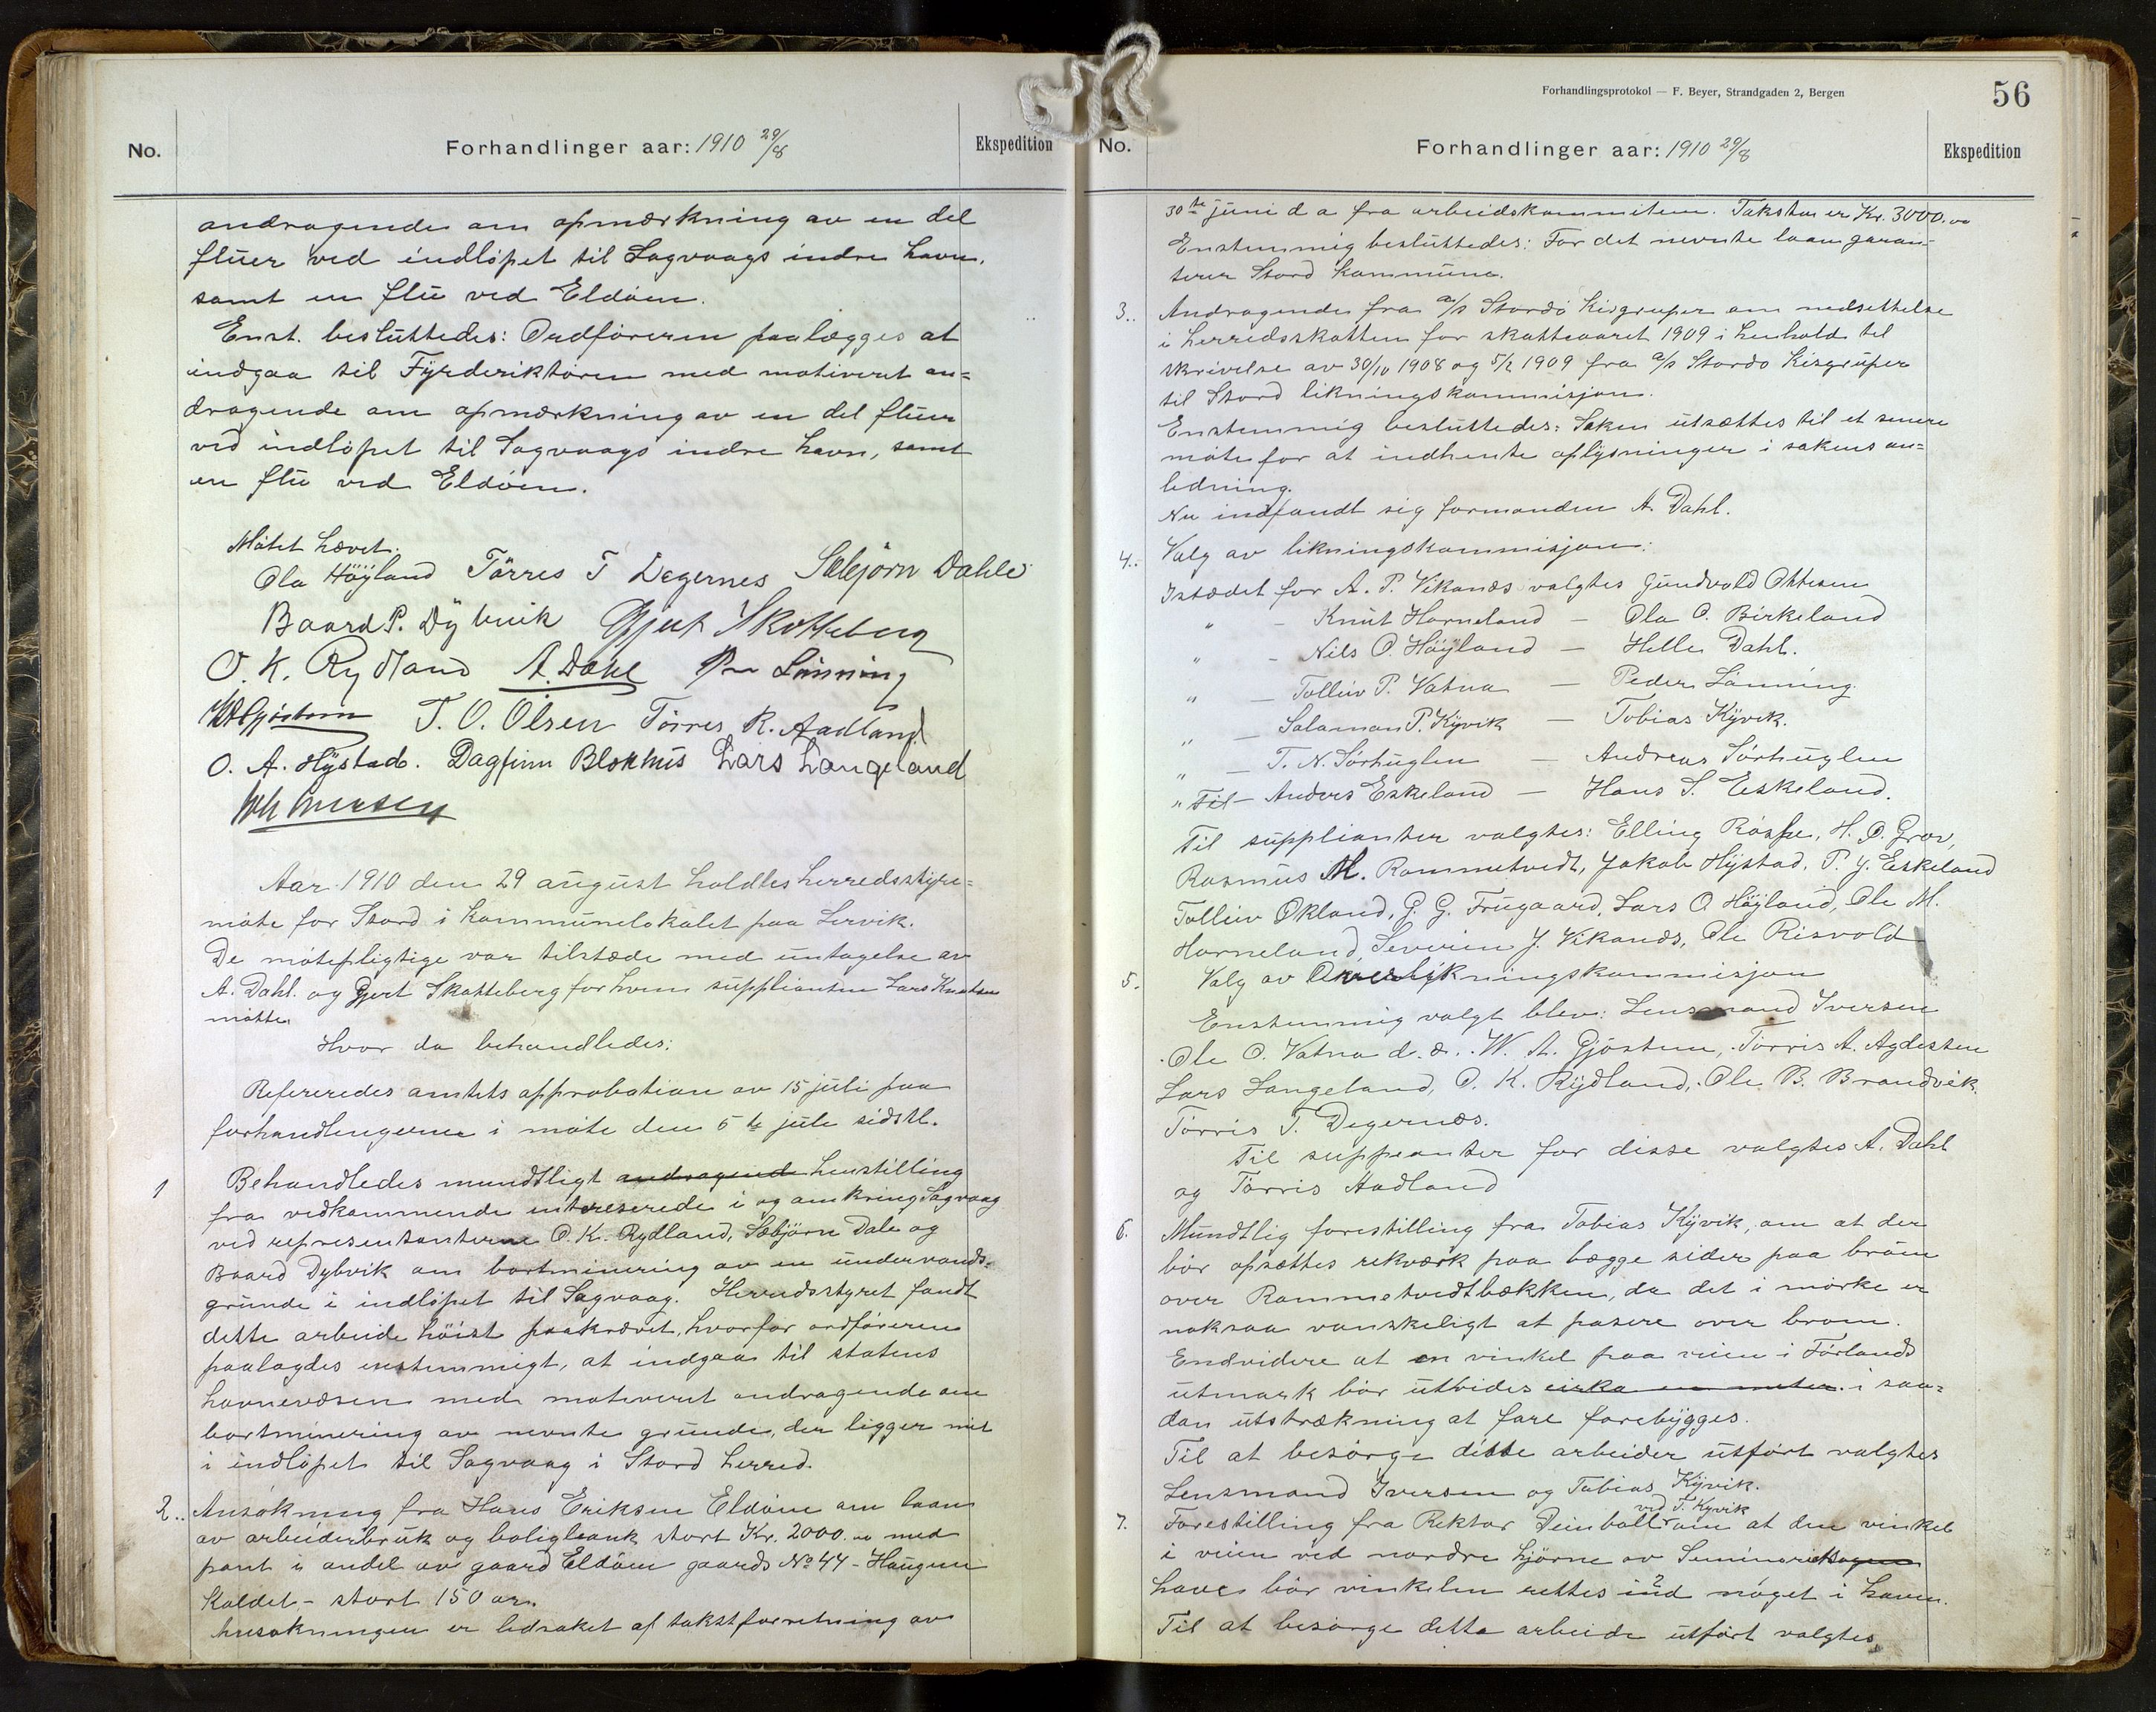 No.
Forhandlinger aar: 1910 29/8
Ekspedition
andragende om opmerkning av en del
fluer ved indløpet til Sagvaags indre havn,
samt en flu ved Eldøen.
Enst. besluttedes: Ordføreren paalægges at
indgaa til Fyrderiktøren med motiveret an=
dragende om opmærkning av en del fluer
ved indløpet til Sagvaags indre havn, samt
en flu ved Eldøen.
Møtet hævet.
Ola Høÿland Tørres T Degernes Sæbjørn Dahle
Baard P. Dÿbvik Gjert Skotteberg
O. K. Rydland A. Dahl Per Lønning
W A Gjøstein T. O. Olsen Tørres R. Aadland
O. A. Hÿstad. Dagfinn Blokhus Lars Langeland
Joh Iversen
Aar 1910 den 29 august holdtes herredsstyre=
møte for Stord i kommunelokalet paa Lervik.
De møtepligtige var tilstæde med untagelse av
A. Dahl. og Gjert Skotteberg for hvem supplianten Lars Knutsen
møtte.
Hvor da behandledes:
Refereredes amtets approbation av 15 juli paa
forhandlingerne i møte den 5te juli sidstl.
1 Behandledes mundtligt andragende henstilling
fra vedkommende intereserede i og omkring Sagvaag
ved representanterne O. K. Rydland, Sæbjørn Dale og
Baard Dybvik om bortminering av en undervands=
grunde i indløpet til Sagvaag. Herredsstyret fandt
dette arbeide høist paakrævet, hvorfor ordføreren
paalagdes enstemmigt, at indgaa til statens
havnevæsen med motiveret andragende om
bortminering av nevnte grunde, der ligger mit
i indløpet til Sagvaag i Stord herred.
2.. Ansøkning fra Hans Eriksen Eldøen om laan
av arbeiderbruk og boligbank stort Kr. 2000.00 med
pant i andel av gaard Eldøen gaards No 44 - Haugen
kaldet - stort 150 ar.
Ansøkningen er ledsaket af takstforretning av
Forhandlingsprotokol — F. Beyer, Strandgaden 2, Bergen
56
No.
Forhandlinger aar: 1910 29/8
Ekspedition
30te juni d a fra arbeidskommiteen. Taksten er Kr. 3000.00
Enstemmig besluttedes: For det nevnte laan garan-
terer Stord kommune.
3.. Andragende fra a/s Stordø Kisgruper om nedsettelse
i herredsskatten for skatteaaret 1909 i henhold til
skrivelse av 30/10 1908 og 5/2 1909 fra a/s Stordø Kisgruper
til Stord likningskommisjon.
Enstemmig besluttedes: Saken utsættes til et senere
møte for at indhente oplysninger i sakens an=
ledning.
Nu indfandt sig formanden A. Dahl.
4.. Valg av likningskommisjon:
Istædet for A. P. Vikanes valgtes Gundvald Ottesen
" - Knut Horneland - Ola O. Birkeland
" - Nils O. Høÿland - Helle Dahl.
" - Tolleiv P. Vatna - Peder Lønning
" - Salamon P. Kÿvik - Tobias Kÿvik.
" - T. N. Sørhuglen - Andreas Sørhuglen
" Til - Anders Eskeland - Hans S. Eskeland.
Til supplianter valgtes: Elling Røsse, H. O. Grov,
Rasmus M. Rommetvedt, Jakob Hÿstad, P. J. Eskeland
Tolleiv Økland, G. G. Frugaard, Lars O Høÿland, Ole M.
Horneland, Severin J. Vikanes, Ole Risvold
5. Valg av Overlikningskommisjon
Enstemmig valgt blev: Lensmand Iversen
Ole O. Vatna d. æ. W. A. Gjøstein, Tørris A. Agdesten
Lars Langeland, O. K. Rÿdland, Ole B. Brandvik
Tørris T. Degernæs.
Til suppeanter for disse valgtes A. Dahl
og Tørris Aadland
6. Mundtlig forestilling fra Tobias Kÿvik, om at der
bør opsættes rekværk paa begge sider paa broen
over Rommetvedtbækken, da det i mørke er
noksaa vanskeligt at pasere over broen.
Endvidere at en vinkel paa veien i Førlands
utmark bør utvides cirka en meter i saa=
dan utstrækning at fare forebÿgges.
Til at besørge disse arbeider utført valgtes
Lensmand Iversen og Tobias Kÿvik.
7. Forestilling fra Rektor Deinboll ved T. Kyvik om at den vinkel
i veien ved nordre hjørne av Seminarie
have bør vinkelen rettes ind noget i haven.
Til at besørge dette arbeide utført valgtes